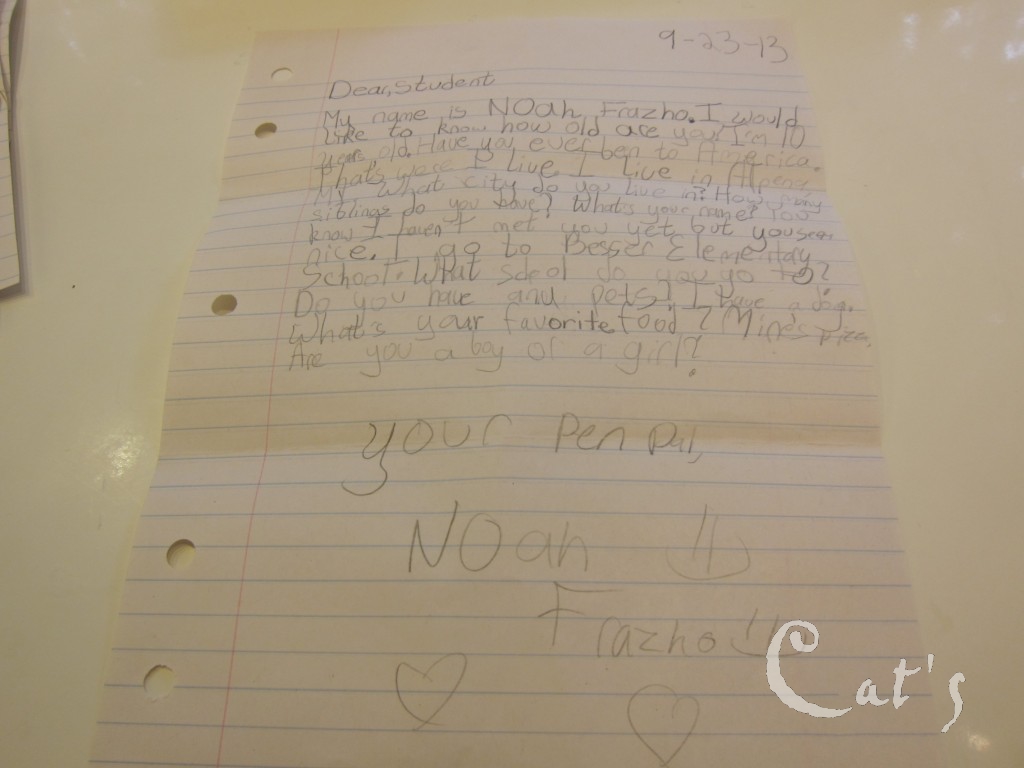 9-23-13
Dear, Student
My name is NOah Frazho. I would
like to know how old are you I'm 10
year old. Have you ever ben to America.
That's were I live. I live in Alpena
MI. What city do you live in? How many
siblings do you have? What's your name? You
know I haven't met you yet, but you seem
nice. I go to Besser Elementay
School. What scool do you go to?
Do you have and pets? I have a dog.
What's your favorite food? Mines pizza.
Are you a boy or a girl?
your Pen pal,
NOah
Frazho
Cat's